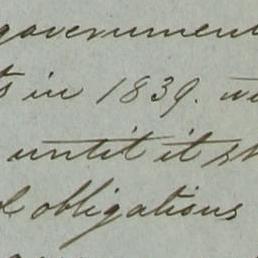 government
in 1839.
until it
obligations